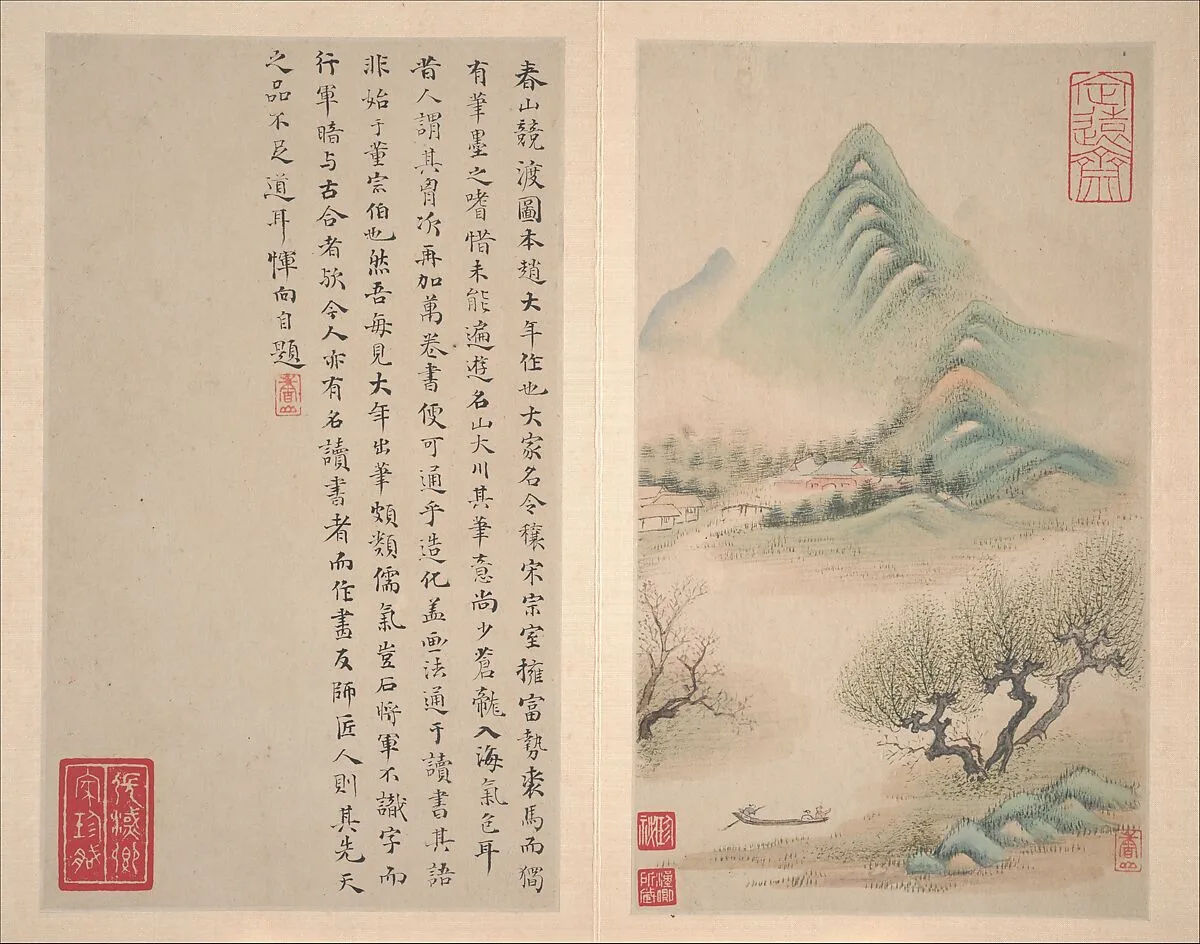 春山競渡圖本趙大年作也大家名令穰宋宗室擁富勢裘馬而獨
有筆墨之嗜惜未能遍遊名山大川其筆意尚少蒼龍入海氣色耳
昔人謂其胷次再加萬卷書便可通乎造化盖画法通于讀書其語
非始于董宗伯也然吾每見大年出筆頗類儒氣豈石將軍不識字而
行軍暗与古合者歟今人亦有名讀書者而作畫反師匠人則其先天
之品不足道耳惲向自題
香山
定遠齋
香山